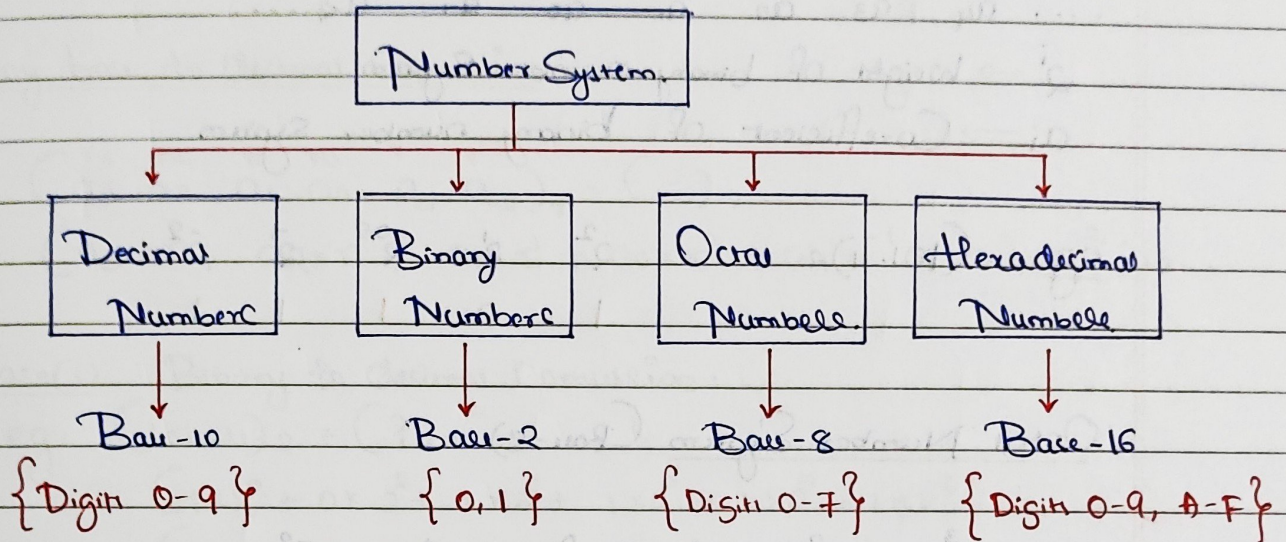 Number System.
Decimal
Numbers
Binary
Numbers
Octal
Numbers.
Hexadecimal
Numbers
Base-10
Base-2
Base-8
Base-16
{Digits 0-9}
{0,1}
{Digits 0-7}
{Digits 0-9, A-F}